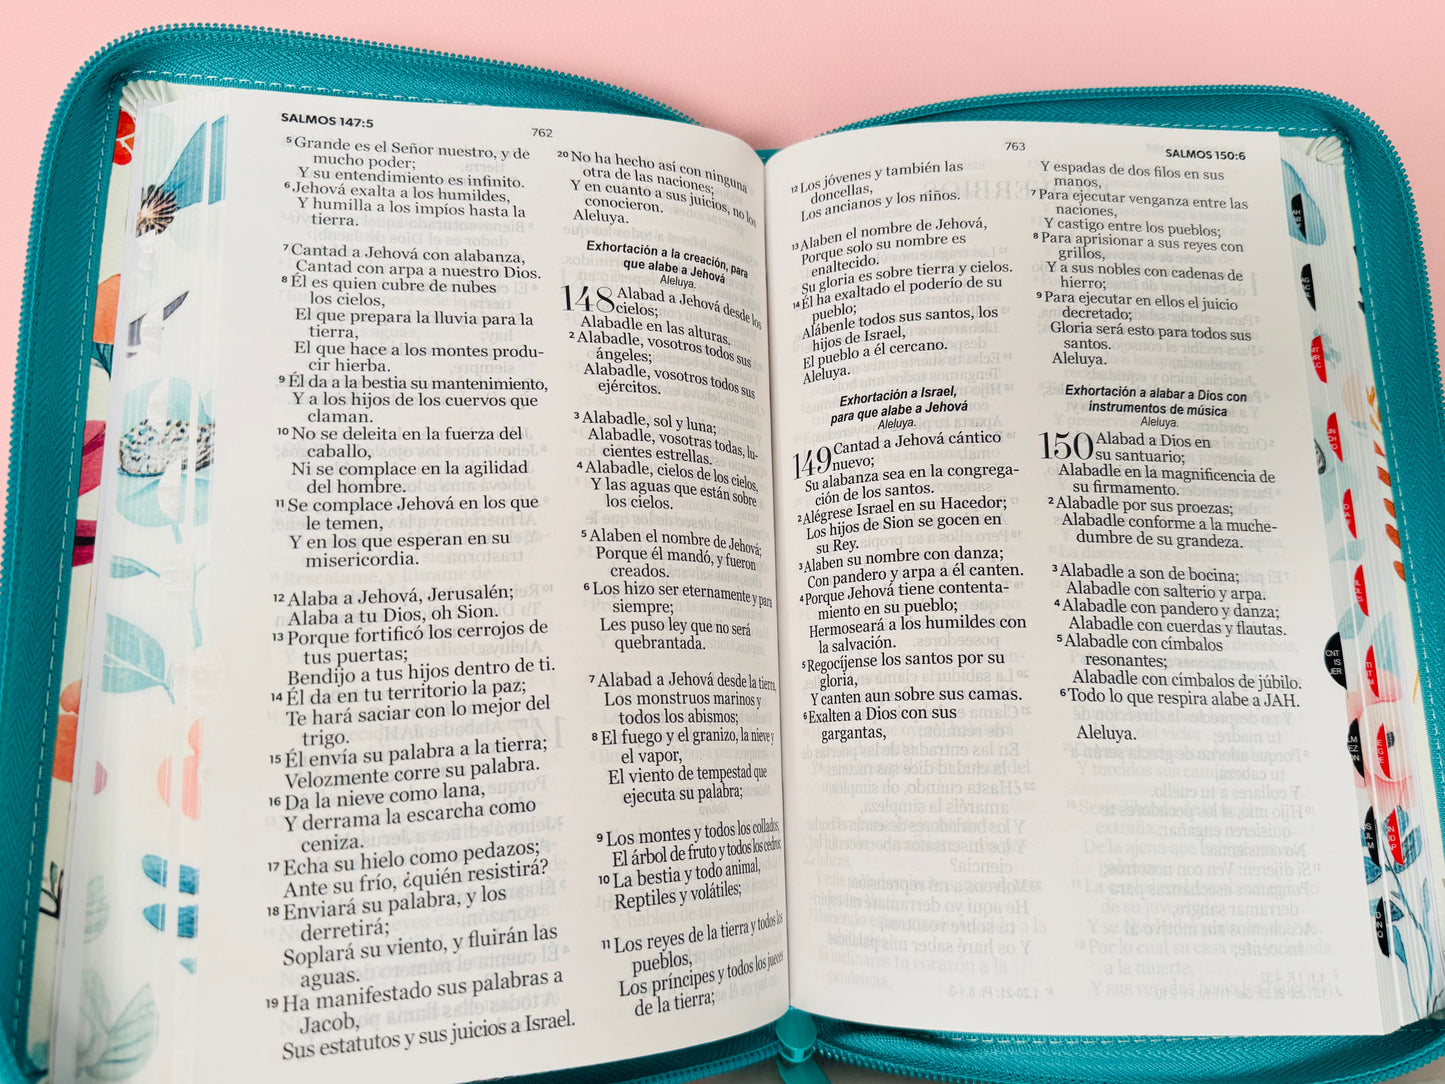 SALMOS 147:5
762
5 Grande es el Señor nuestro, y de
mucho poder;
Y su entendimiento es infinito.
6 Jehová exalta a los humildes,
Y humilla a los impíos hasta la
tierra.
7 Cantad a Jehová con alabanza,
Cantad con arpa a nuestro Dios.
8 Él es quien cubre de nubes
los cielos,
El que prepara la lluvia para la
tierra,
El que hace a los montes produ-
cir hierba.
9 Él da a la bestia su mantenimiento,
Y a los hijos de los cuervos que
claman.
10 No se deleita en la fuerza del
caballo,
Ni se complace en la agilidad
del hombre.
11 Se complace Jehová en los que
le temen,
Y en los que esperan en su
misericordia.
12 Alaba a Jehová, Jerusalén;
Alaba a tu Dios, oh Sion.
13 Porque fortificó los cerrojos de
tus puertas;
Bendijo a tus hijos dentro de ti.
14 Él da en tu territorio la paz;
Te hará saciar con lo mejor del
trigo.
15 Él envía su palabra a la tierra;
Velozmente corre su palabra.
16 Da la nieve como lana,
Y derrama la escarcha como
ceniza.
17 Echa su hielo como pedazos;
Ante su frío, ¿quién resistirá?
18 Enviará su palabra, y los
derretirá;
Soplará su viento, y fluirán las
aguas.
19 Ha manifestado sus palabras a
Jacob,
Sus estatutos y sus juicios a Israel.
20 No ha hecho así con ninguna
otra de las naciones;
Y en cuanto a sus juicios, no los
conocieron.
Aleluya.
Exhortación a la creación, para
que alabe a Jehová
Aleluya.
148 Alabad a Jehová desde los
cielos;
Alabadle en las alturas.
2 Alabadle, vosotros todos sus
ángeles;
Alabadle, vosotros todos sus
ejércitos.
3 Alabadle, sol y luna;
Alabadle, vosotras todas, lu-
cientes estrellas.
4 Alabadle, cielos de los cielos,
Y las aguas que están sobre
los cielos.
5 Alaben el nombre de Jehová;
Porque él mandó, y fueron
creados.
6 Los hizo ser eternamente y para
siempre;
Les puso ley que no será
quebrantada.
7 Alabad a Jehová desde la tierra,
Los monstruos marinos y
todos los abismos;
8 El fuego y el granizo, la nieve y
el vapor,
El viento de tempestad que
ejecuta su palabra;
9 Los montes y todos los collados,
El árbol de fruto y todos los cedros;
10 La bestia y todo animal,
Reptiles y volátiles;
11 Los reyes de la tierra y todos los
pueblos,
Los príncipes y todos los jueces
de la tierra;
763
SALMOS 150:6
12 Los jóvenes y también las
doncellas,
Los ancianos y los niños.
13 Alaben el nombre de Jehová,
Porque solo su nombre es
enaltecido.
Su gloria es sobre tierra y cielos.
14 Él ha exaltado el poderío de su
pueblo;
Alábenle todos sus santos, los
hijos de Israel,
El pueblo a él cercano.
Aleluya.
Exhortación a Israel,
para que alabe a Jehová
Aleluya.
149 Cantad a Jehová cántico
nuevo;
Su alabanza sea en la congrega-
ción de los santos.
2 Alégrese Israel en su Hacedor;
Los hijos de Sion se gocen en
su Rey.
3 Alaben su nombre con danza;
Con pandero y arpa a él canten.
4 Porque Jehová tiene contenta-
miento en su pueblo;
Hermoseará a los humildes con
la salvación.
5 Regocíjense los santos por su
gloria,
Y canten aun sobre sus camas.
6 Exalten a Dios con sus
gargantas,
Y espadas de dos filos en sus
manos,
7 Para ejecutar venganza entre las
naciones,
Y castigo entre los pueblos;
8 Para aprisionar a sus reyes con
grillos,
Y a sus nobles con cadenas de
hierro;
9 Para ejecutar en ellos el juicio
decretado;
Gloria será esto para todos sus
santos.
Aleluya.
Exhortación a alabar a Dios con
instrumentos de música
Aleluya.
150 Alabad a Dios en
su santuario;
Alabadle en la magnificencia de
su firmamento.
2 Alabadle por sus proezas;
Alabadle conforme a la muche-
dumbre de su grandeza.
3 Alabadle a son de bocina;
Alabadle con salterio y arpa.
4 Alabadle con pandero y danza;
Alabadle con cuerdas y flautas.
5 Alabadle con címbalos
resonantes;
Alabadle con címbalos de júbilo.
6 Todo lo que respira alabe a JAH.
Aleluya.
CNT
IS
JER